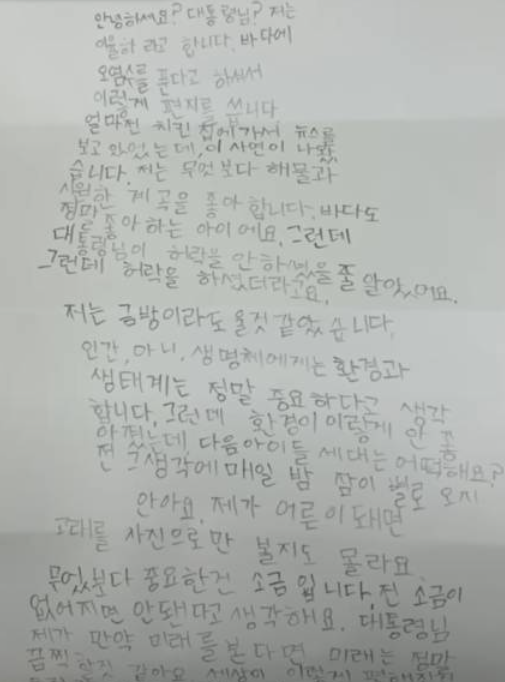 안녕하세요? 대통령님? 저는
이율하 라고 합니다. 바다에
오염수를 푼다고 하셔서
이렇게 편지를 씁니다
얼마전 치킨 집에가서 뉴스를
보고 있었는데, 이 사연이 나왔
습니다. 저는 무엇보다 해물과
시원한 계곡을 좋아 합니다. 바다도
정말 좋아하는 아이에요. 그런데
대통령님이 허락을 안 하셨을 줄 알았어요.
그런데 허락을 하셨더라고요,
저는 금방이라도 울것 같았습니다.
인간, 아니, 생명체에게는 환경과
생태계는 정말 중요하다고 생각
합니다. 그런데 환경이 이렇게 안 좋
아졌는데, 다음아이들 세대는 어떡해요?
전 그생각에 매일 밤 잠이 별로 오지
안아요. 제가 어른이 돼면
고래를 사진으로만 볼지도 몰라요.
무엇보다 중요한건 소금 입니다. 전 소금이
없어지면 안됀다고 생각해요. 대통령님
제가 만약 미래를 본다면 미래는 정말
끔찍 할것 같아요. 세상이 어떻게